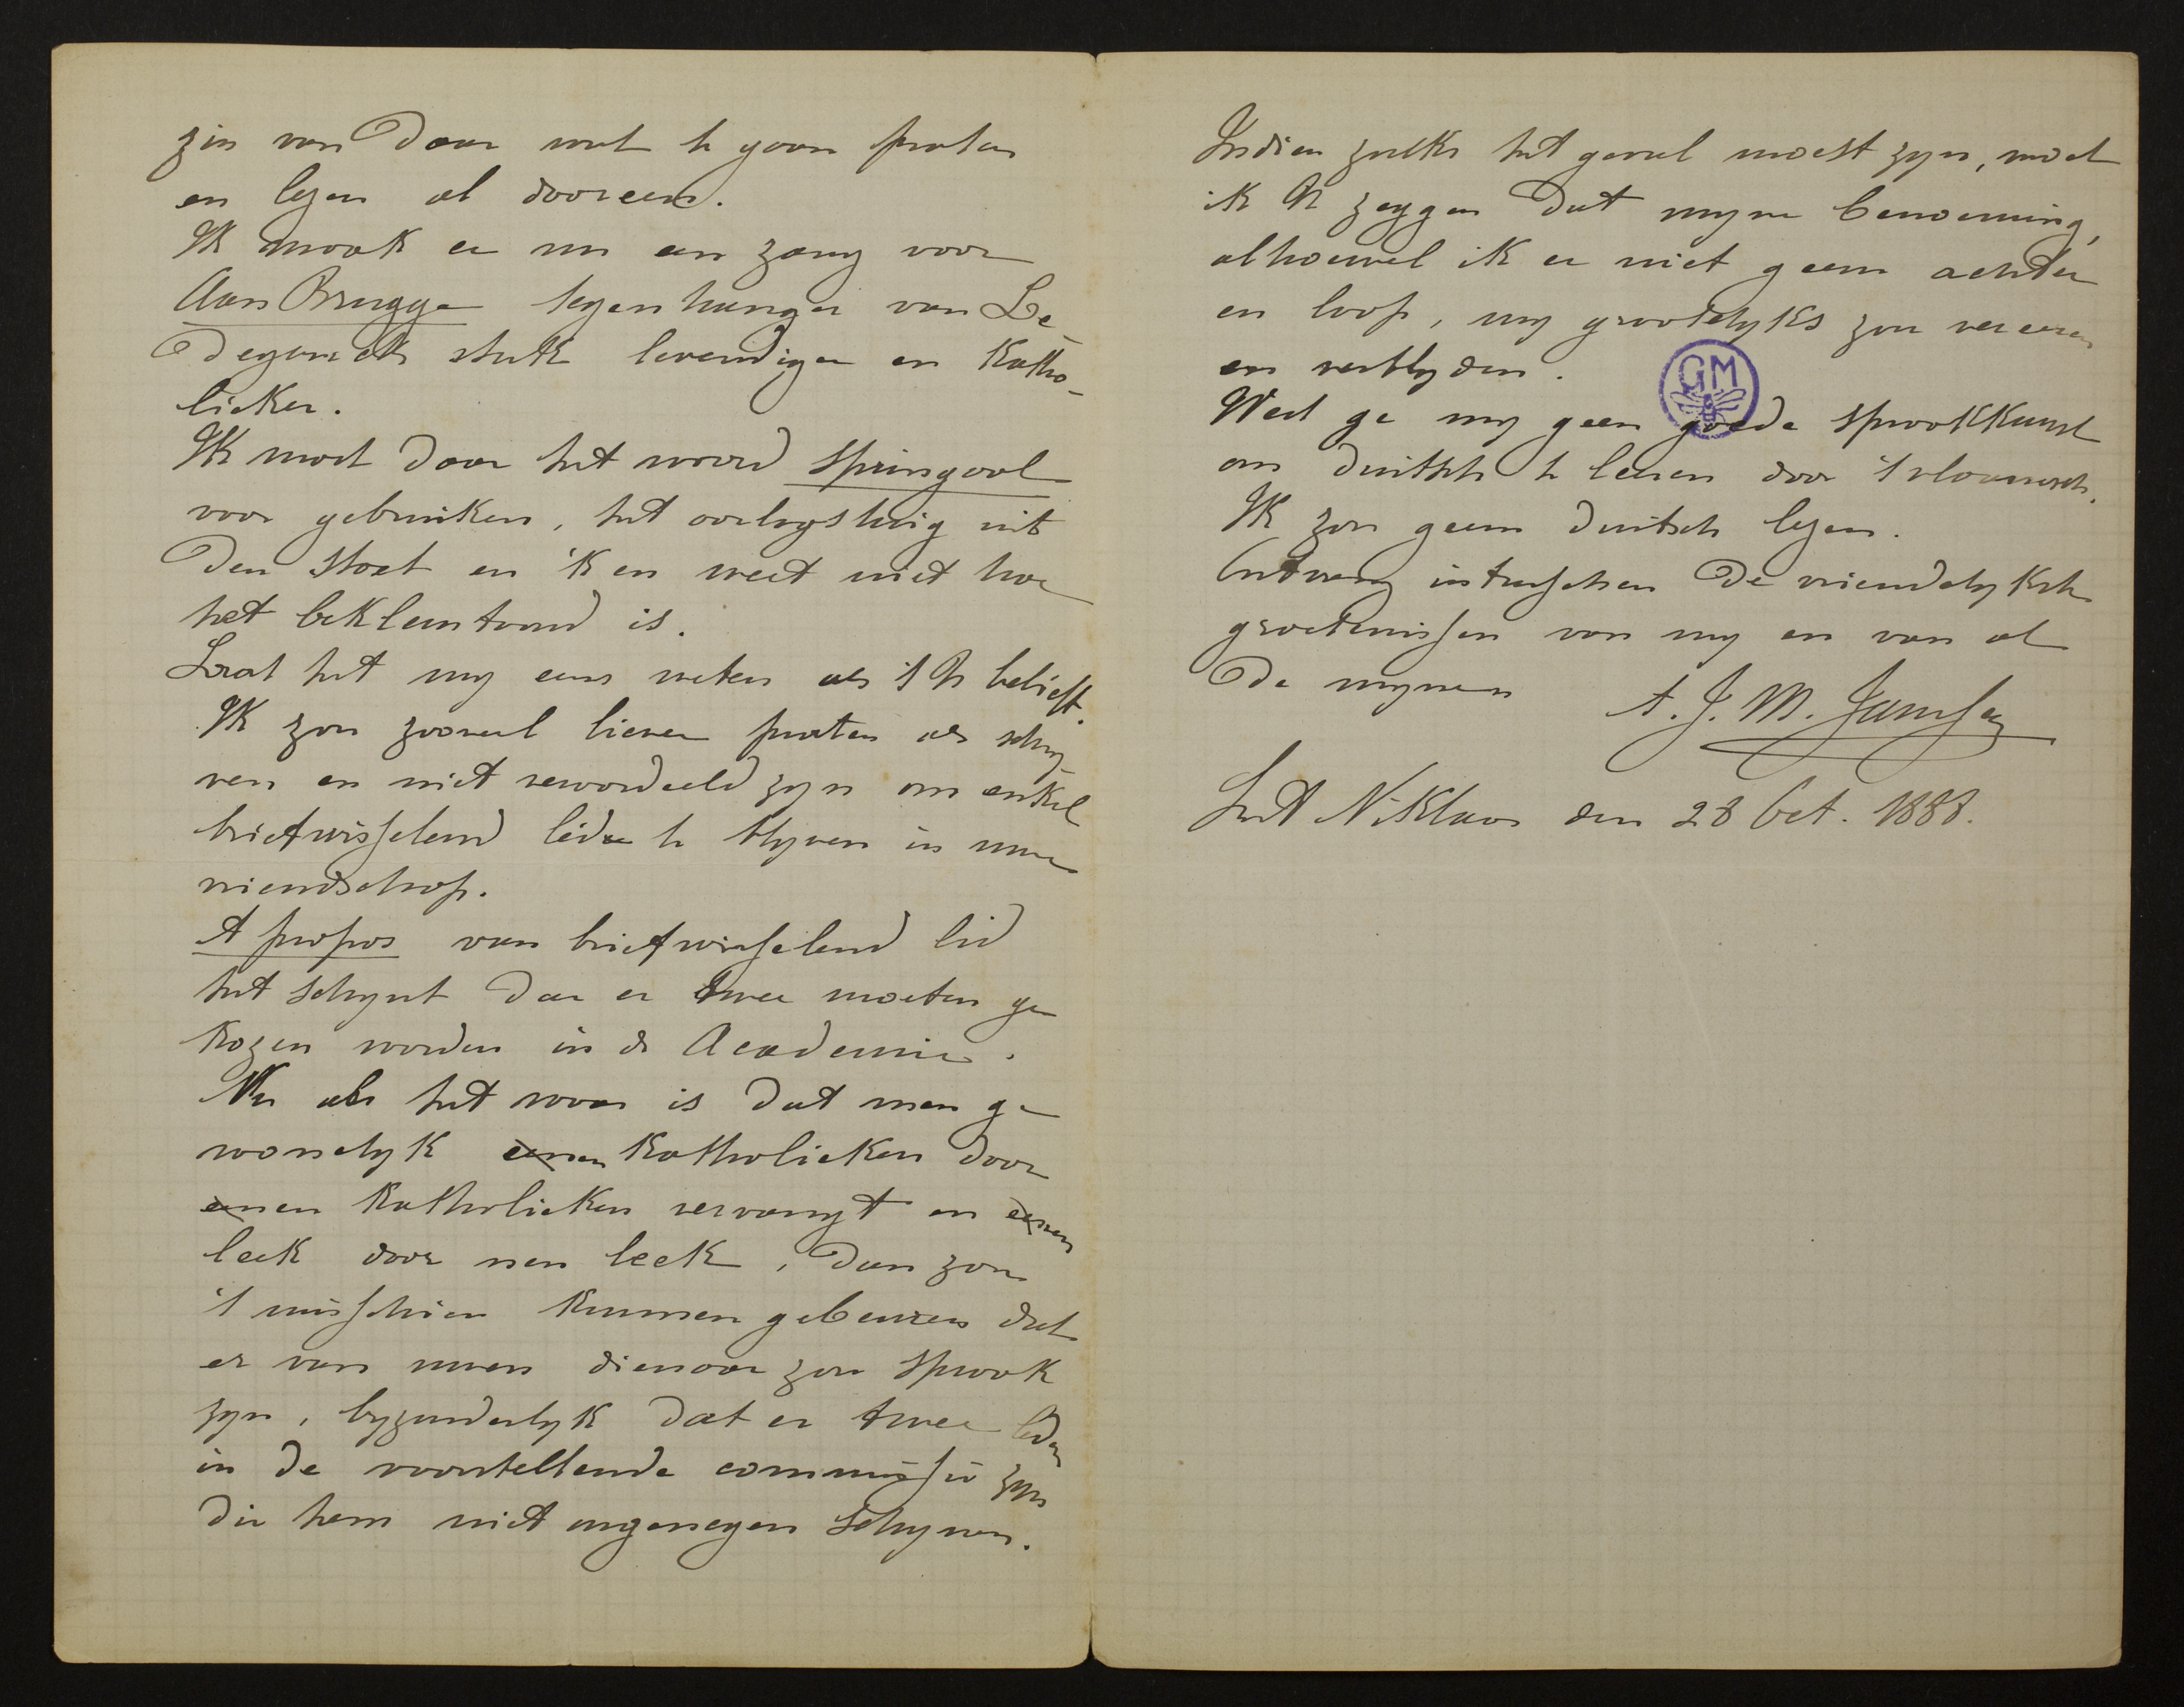 zin van daar wat te gaan praten
en lezen al dooreen.
Ik maak er nu een zang voor
Aan Brugge tegenhanger van Le-
degancks stuk levendiger en katho-
lieker.
Ik moet daar het woord springaal
voor gebruiken, het oorlogstuig uit
den stoet en 'k en weet niet hoe
het beklemtoond is.
Laat het my eens weten als 't U belieft.
Ik zou zooveel liever praten als schry-
ven en niet veroordeeld zyn om enkel
briefwisselend lid te blyven in uwe
vriendschap.
A propos van briefwisselend lid
het schynt dat er twee moeten ge
kozen worden in de Academie.
Nu als het waar is dat men ge
woonelyk eenen katholieken door
eenen katholieken vervangt en eenen
leek door nen leek, dan zou
't misschien kunnen gebeuren dat
er van uwen dienaar zou spraak
zyn, byzonderlyk dat er twee leden
in de voorstellende commissie zyn
die hem niet ongenegen schynen.
Indien zulks het geval moest zyn, moet
ik U zeggen dat myne benoeming,
alhoewel ik er niet geern achter
en loop, my grootelyks zou vereeren
en verblyden.
GM
Weet ge my geen goede spraakkunst
om duitsch te leeren door 't vlaamsch.
Ik zou geern duitsch lezen.
Ontvang intusschen de vriendelykste
groetenissen van my en van al
de mynen
A. J. M. Janssen
Sint Niklaas den 28 Oct. 1888.